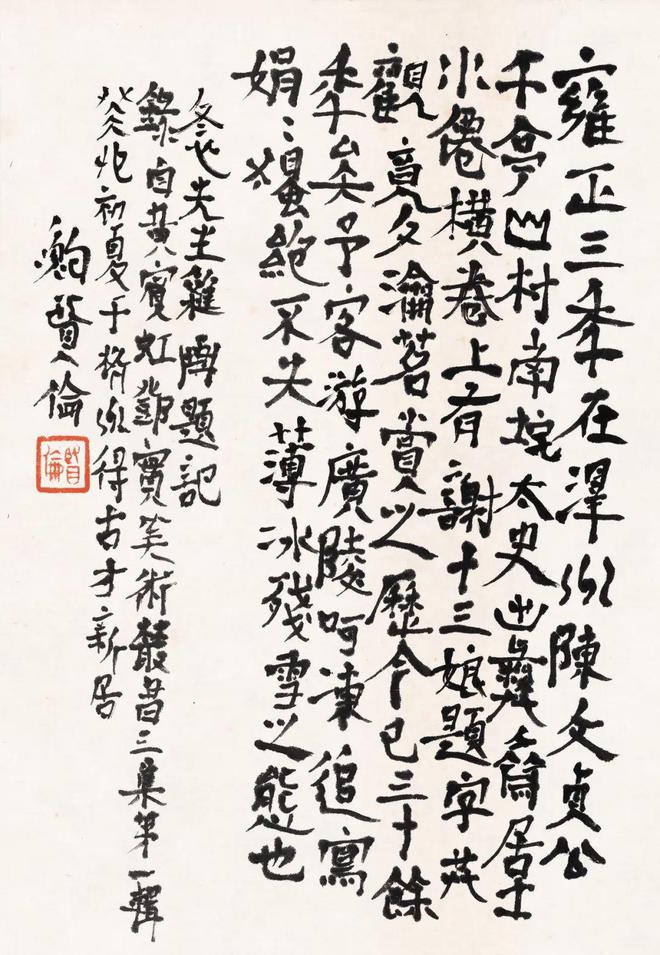 雍正三年在澤州陳文貞公
午亭山村南垞太史出彝齋居士
水僊橫卷上有謝十三娘題字共
觀竟夕瀹茗賞之歷今已三十餘
年矣予客游廣陵呵凍追寫
娟〻絕不失薄冰殘雪之態也
冬心先生雜畫題記
錄自黃賓虹鄧實美術叢書三集第一輯
癸卯初夏于州得古才新居
賢倫